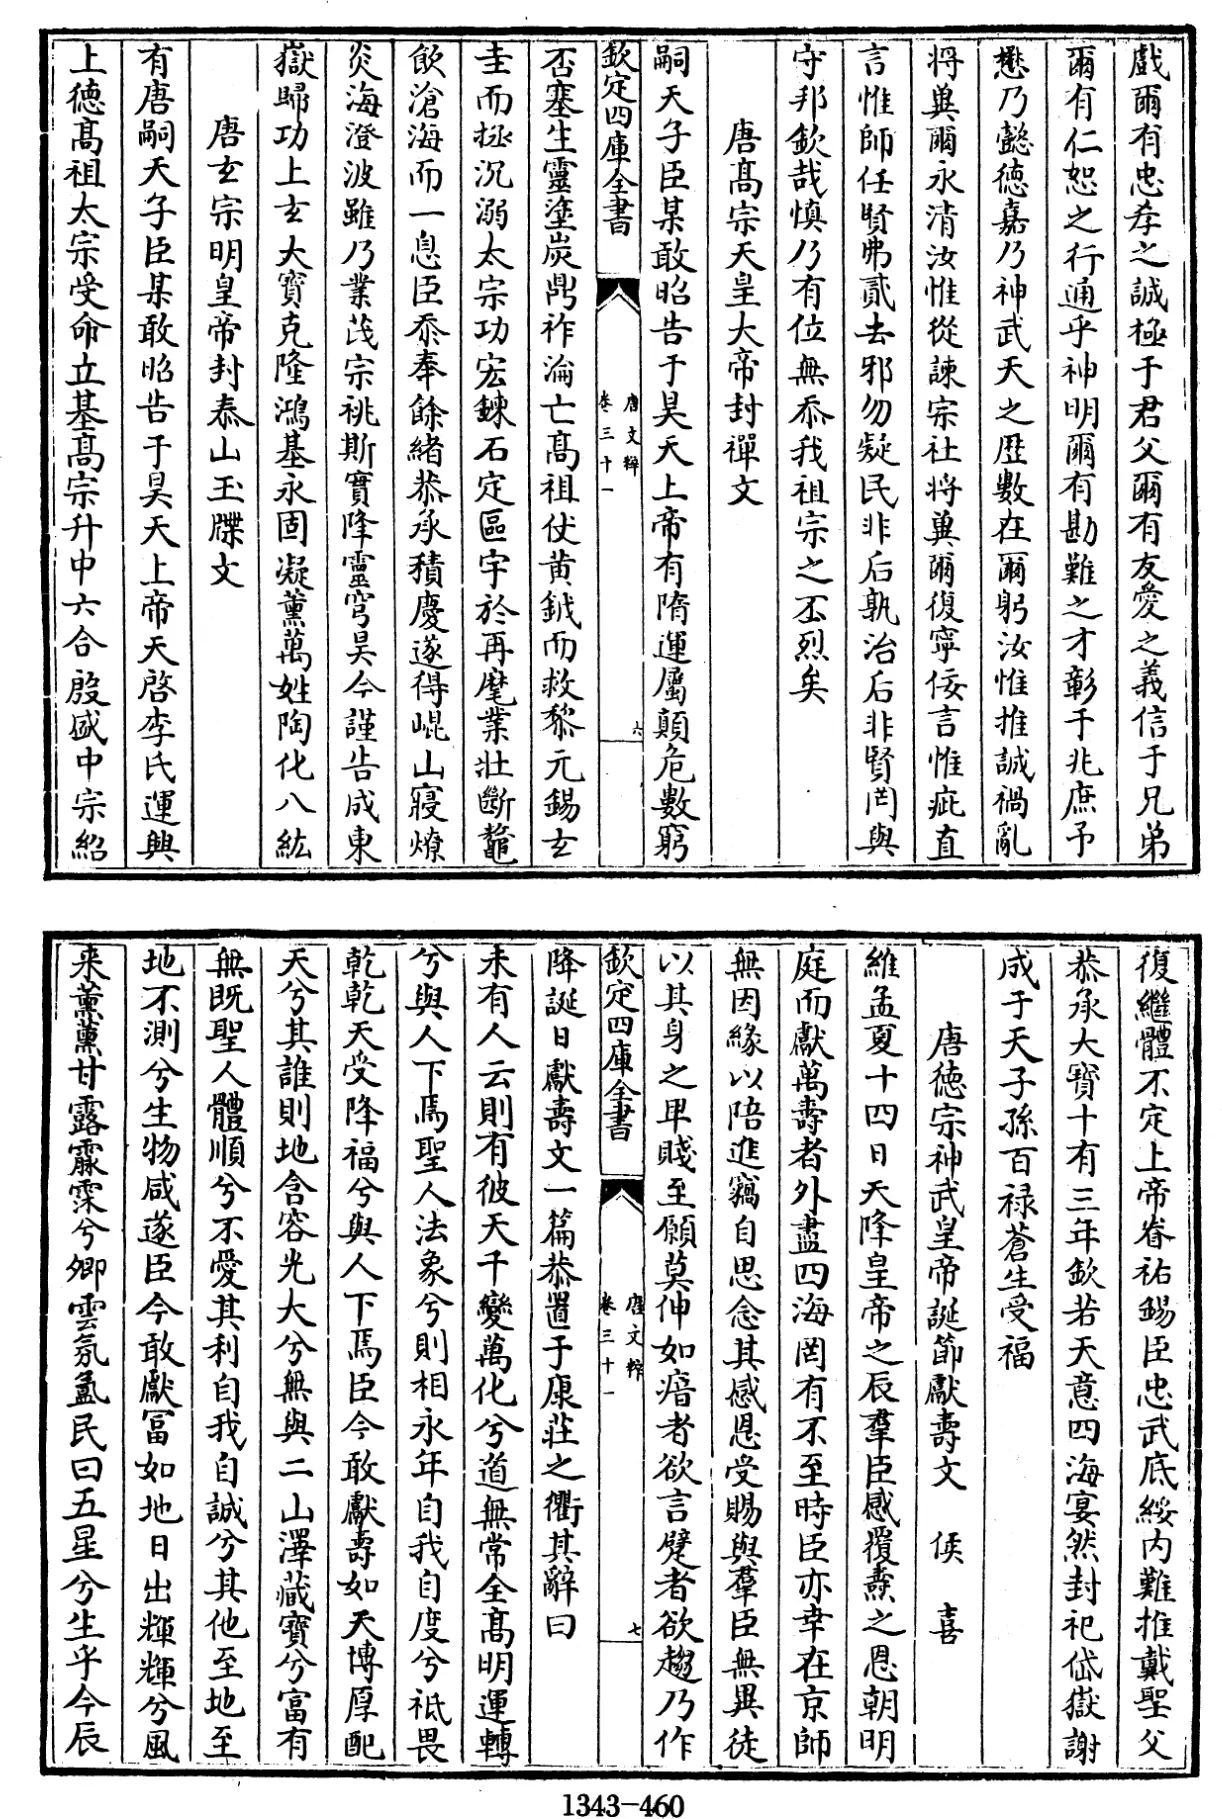 戲爾有忠孝之誠極于君父爾有友愛之義信于兄弟
爾有仁恕之行通乎神明爾有勘難之才彰于兆庶予
懋乃懿徳嘉乃神武天之厯數在爾躬汝惟推誠禍亂
將與爾永清汝惟從諫宗社將與爾復寧佞言惟疵直
言惟師任賢弗貳去邪勿疑民非后孰治后非賢罔與
守邦欽哉慎乃有位無忝我祖宗之丕烈矣
唐髙宗天皇大帝封禪文
嗣天子臣某敢昭告于昊天上帝有隋運屬顛危數窮
欽定四庫全書
唐文粹
卷三十一
六
否塞生靈塗炭鼎祚淪亡髙祖仗黄鉞而救黎元錫玄
圭而拯沉溺太宗功宏鍊石定區宇於再麾業壯斷鼇
飲滄海而一息臣忝奉餘緒恭承積慶遂得崐山寢燎
炎海澄波雖乃業茂宗祧斯實降靈穹昊今謹告成東
嶽歸功上玄大寳克隆鴻基永固凝薰萬姓陶化八紘
唐玄宗明皇帝封泰山玉牒文
有唐嗣天子臣某敢昭告于昊天上帝天啓李氏運興
上徳髙祖太宗受命立基髙宗升中六合殷盛中宗紹
復繼體不定上帝眷祐錫臣忠武底綏内難推戴聖父
恭承大寳十有三年欽若天意四海宴然封祀岱嶽謝
成于天子孫百禄蒼生受福
唐徳宗神武皇帝誕節獻壽文　侯　喜
維孟夏十四日天降皇帝之辰羣臣感覆燾之恩朝明
庭而獻萬壽者外盡四海罔有不至時臣亦幸在京師
無因縁以陪進竊自思念其感恩受賜與羣臣無異徒
以其身之卑賤至願莫伸如瘖者欲言躄者欲趨乃作
欽定四庫全書
唐文粹
卷三十一
七
降誕日獻壽文一篇恭置于康莊之衢其辭曰
未有人云則有彼天千變萬化兮道無常全髙明運轉
兮與人下焉聖人法象兮則相永年自我自度兮祗畏
乾乾天受降福兮與人下焉臣今敢獻壽如天博厚配
天兮其誰則地含容光大兮無與二山澤藏寳兮富有
無既聖人體順兮不愛其利自我自誠兮其他至地至
地不測兮生物咸遂臣今敢獻冨如地日出輝輝兮風
来薰薰甘露霢霂兮卿雲氛氲民曰五星兮生乎今辰
1343-460